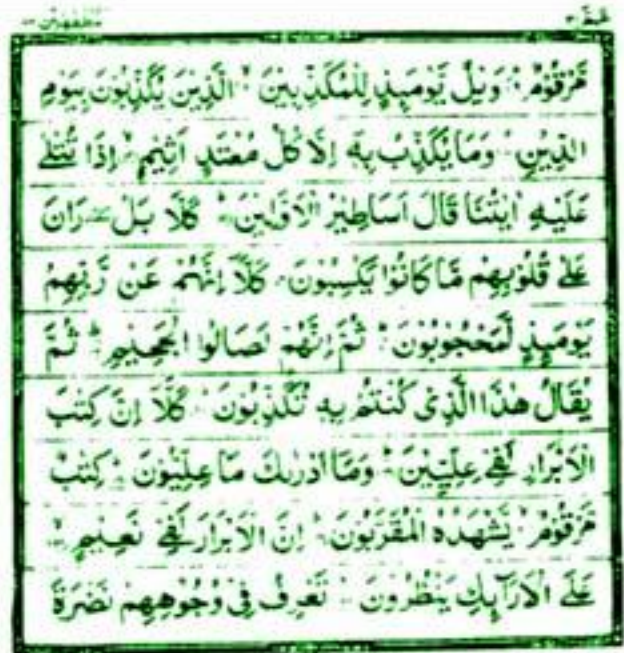 عَمَّ ٣٠ المطففين ٨٣
مَّرْقُوْمٌ ۙ وَيْلٌ يَّوْمَىِٕذٍ لِّلْمُكَذِّبِيْنَ ۙ الَّذِيْنَ يُكَذِّبُوْنَ بِيَوْمِ
الدِّيْنِ ۙ وَمَا يُكَذِّبُ بِهٖۤ اِلَّا كُلُّ مُعْتَدٍ اَثِيْمٍ ۙ اِذَا تُتْلٰى
عَلَيْهِ اٰيٰتُنَا قَالَ اَسَاطِيْرُ الْاَوَّلِيْنَ ؕ كَلَّا بَلْ ٚ رَانَ
عَلٰى قُلُوْبِهِمْ مَّا كَانُوْا يَكْسِبُوْنَ كَلَّاۤ اِنَّهُمْ عَنْ رَّبِّهِمْ
يَوْمَىِٕذٍ لَّمَحْجُوْبُوْنَ ؕ ثُمَّ اِنَّهُمْ لَصَالُوا الْجَحِيْمِ ؕ ثُمَّ
يُقَالُ هٰذَا الَّذِيْ كُنْتُمْ بِهٖ تُكَذِّبُوْنَ ؕ كَلَّاۤ اِنَّ كِتٰبَ
الْاَبْرَارِ لَفِيْ عِلِّيِّيْنَ ؕ وَمَاۤ اَدْرٰىكَ مَا عِلِّيُّوْنَ ؕ كِتٰبٌ
مَّرْقُوْمٌ ۙ يَّشْهَدُهُ الْمُقَرَّبُوْنَ ؕ اِنَّ الْاَبْرَارَ لَفِيْ نَعِيْمٍ ۙ
عَلَى الْاَرَآىِٕكِ يَنْظُرُوْنَ ۙ تَعْرِفُ فِيْ وُجُوْهِهِمْ نَضْرَةَ